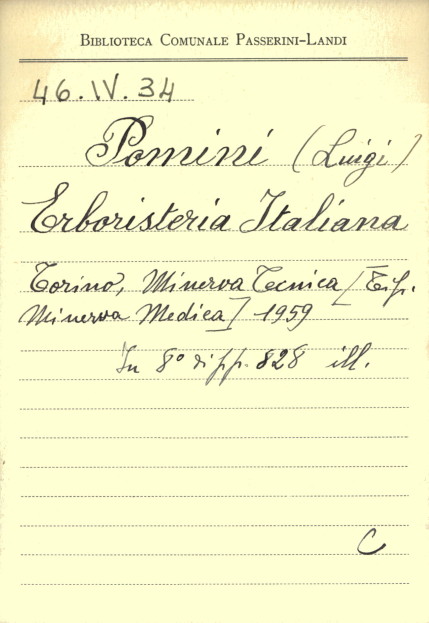 BIBLIOTECA COMUNALE PASSERINI-LANDI
46.IV.34
Pomini (Luigi)
Erboristeria Italiana
Torino, Minerva Tecnica [Tip.
Minerva Medica] 1959
In 8° di pp. 828 ill.
C